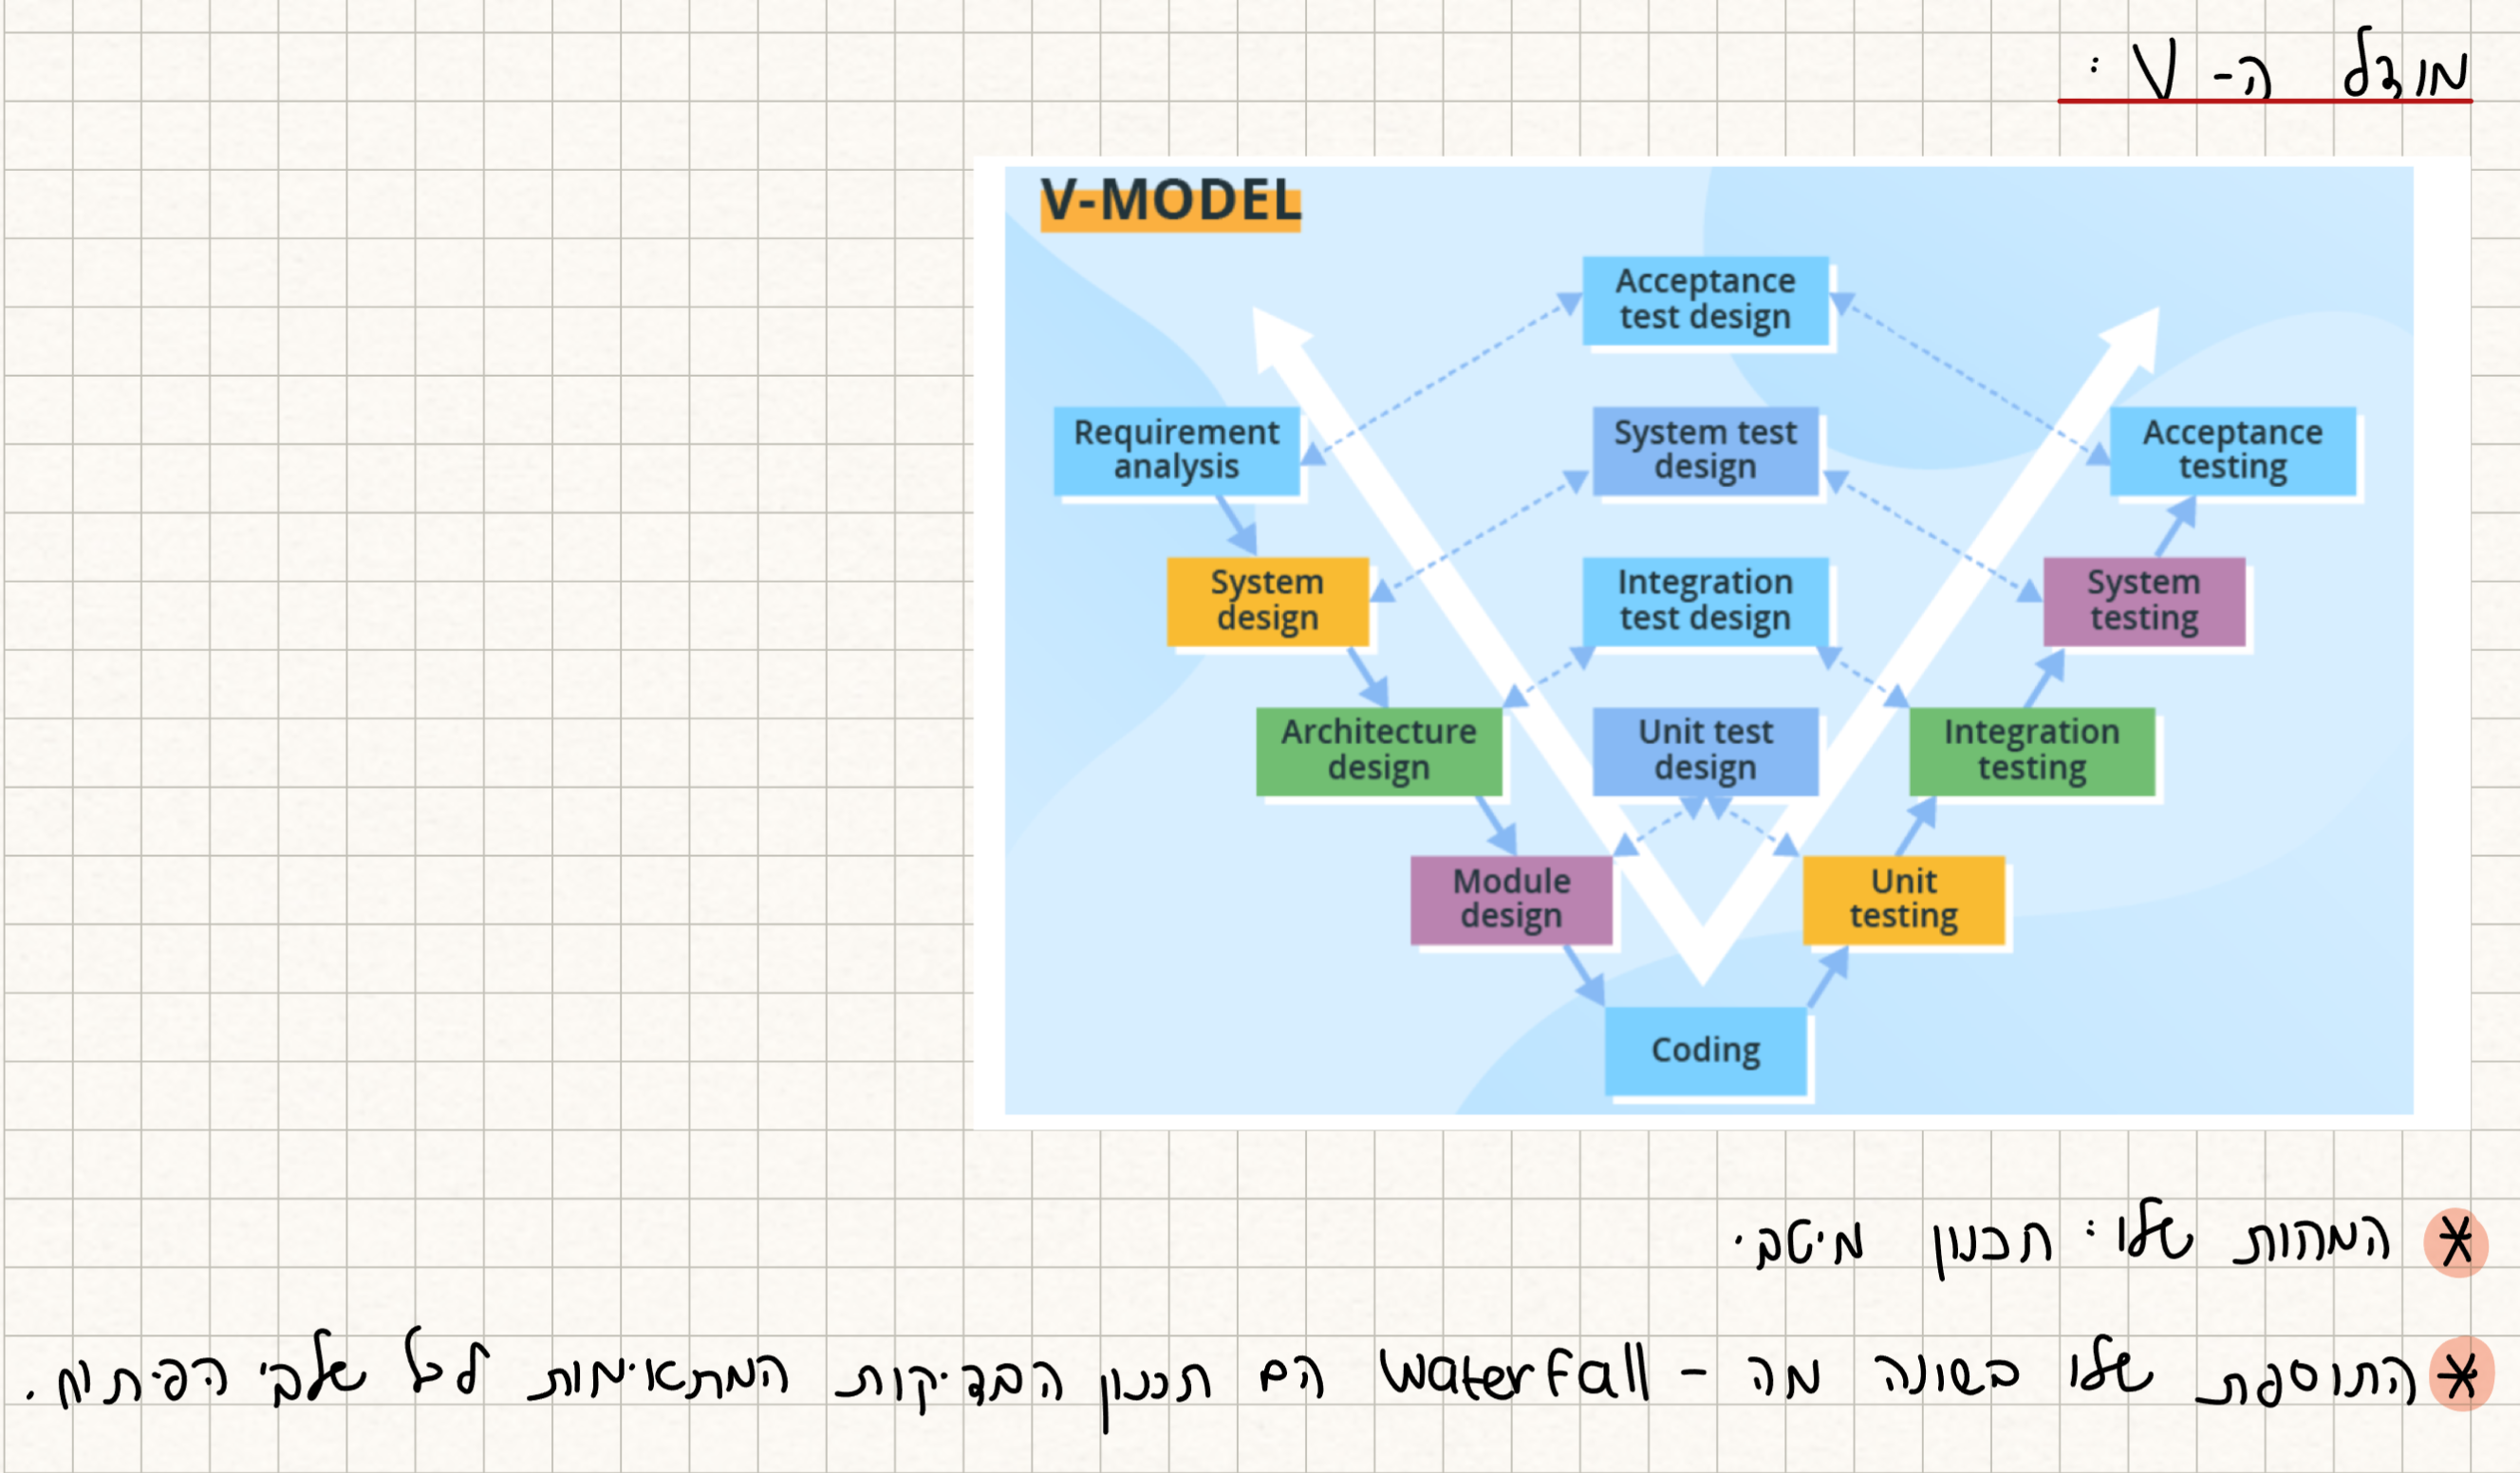 מודל ה- V :
V-MODEL
Acceptance
test design
Requirement
analysis
System test
design
Acceptance
testing
System
design
Integration
test design
System
testing
Architecture
design
Unit test
design
Integration
testing
Module
design
Unit
testing
Coding
* המהות שלו: תכנון מיטבי.
* התוספת שלו בשונה מה - Waterfall הם תכנון הבדיקות המתאימות לכל שלבי הפיתוח.